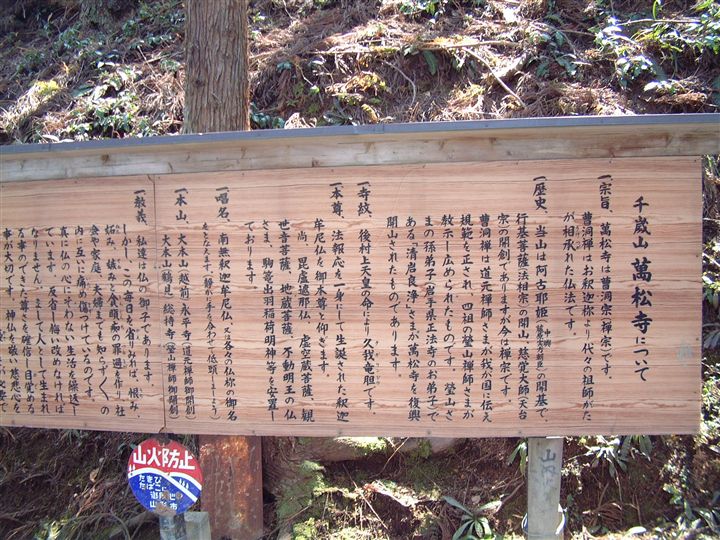 千歳山 萬松寺について
一宗旨、萬松寺は曹洞宗(禅宗)です。
曹洞禅はお釈迦様より代々の祖師がた
が相承された仏法です。
一歴史、当山は阿古耶姫の開基で、
行基菩薩(法相宗)の開山、慈覚大師(天台
宗)の開創でありますが今は禅宗です。
曹洞禅は道元禅師さまが我が国に伝え
規範を正され、四祖の瑩山禅師さまが
教示し広められたものです。瑩山さ
まの孫弟子(岩手県正法寺のお弟子)で
ある「清岩良浄」さまが萬松寺を復興
開山されたものであります。
一寺紋、後村上天皇の命により久我竜胆です。
一本尊、法報応を一身として生誕された釈迦
牟尼仏を御本尊と仰ぎます。
尚、毘盧遮那仏、虚空蔵菩薩、観
世音菩薩、地蔵菩薩、不動明王の仏
さま、駒籌出羽稲荷明神等を安置し
ております。
一唱名、南無釈迦牟尼仏、又は各々の仏様の御名
をとなえます。(静かに手を合わせて、低頭しましょう)
一本山、大本山(越前)永平寺(道元禅師御開創)
大本山(鶴見)総持寺(瑩山禅師御開創)
一教義、私達は仏の御子であります。
しかし、この毎日を省りみれば、恨み、
妬み、嫉みと貪瞋痴の罪過を作り、社
会や家庭、夫婦までも知らずしらずの
内に互に痛め傷つけているのです。
真に仏の心にそわない生活を繰返し
ています。反省し悔い改めなければ
なりません。まして人として生まれ
る事のできた尊さを確信し自覚める
事が大切です。神仏を敬い、慈悲心を
山火防止
たきび
たばこに
御用心
山形市
山形